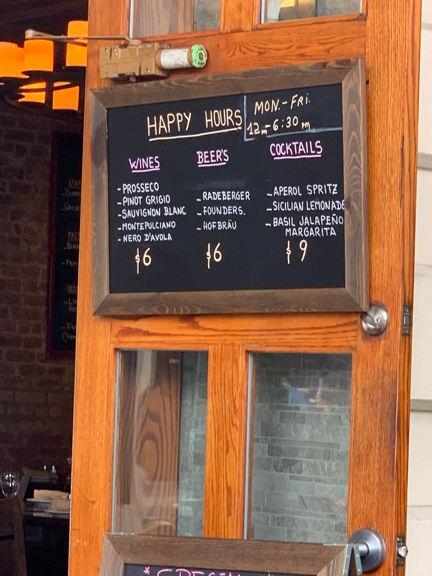 HAPPY HOURS
MON.-FRI.
12m-6:30 m
WINES
-PROSSECO
-PINOT GRIGIO
-SAUVIGNON BLANC
-MONTEPULCIANO
-NERO D'AVOLA
$6
BEER'S
-RADEBERGER
-FOUNDERS.
-HOFBRÄU
$6
COCKTAILS
-APEROL SPRITZ
-SICILIAN LEMONADE
-BASIL JALAPEÑO
MARGARITA
$9